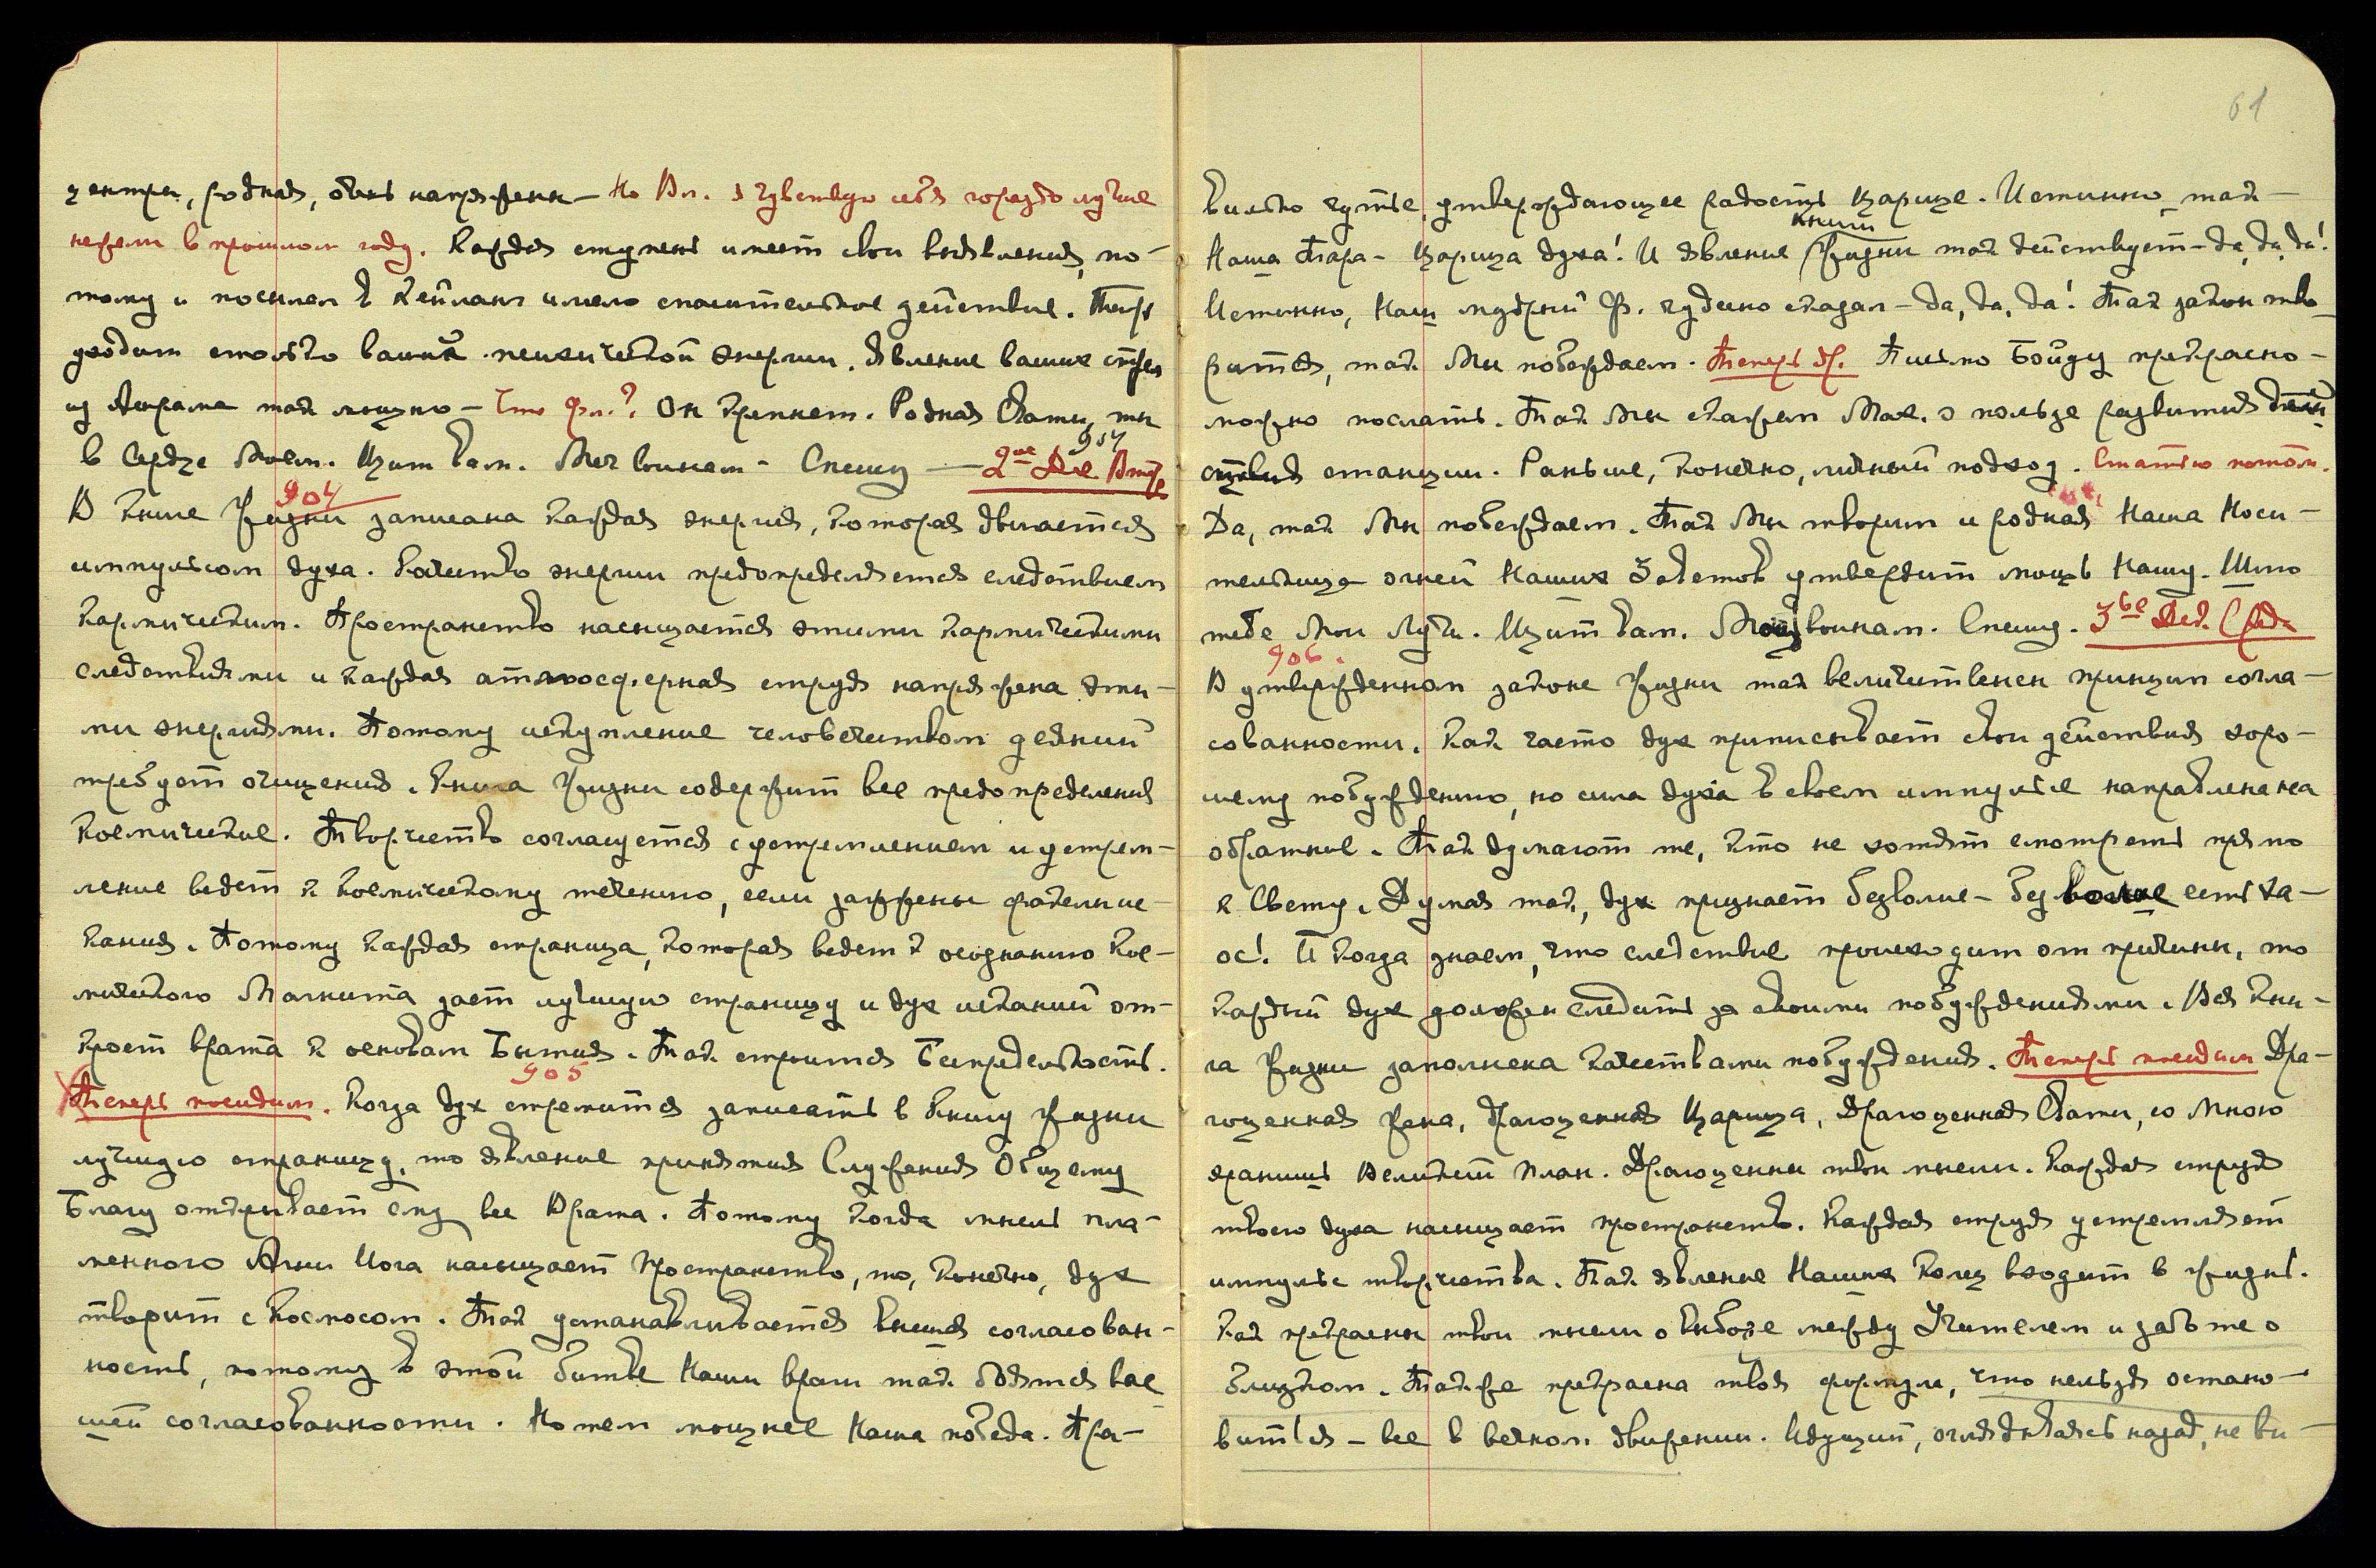 центры, родная, очень напряжены — Но Вл. я чувствую себя гораздо лучше
нежели в прошлом году. Каждая ступень имеет свои выявления, по-
тому и посылал в Кейланг имело спасительное действие. Теперь
уходит столько ваших психической энергии. Явление ваших стрел
из Ашрама так мощно — Что Фл.? Он крепнет. Родная Свати, ты
904
в Сердце Моем. Щит вам. Меч воинам. Спешу — 2ое Дек Втор
904
В Книге Жизни записана каждая энергия, которая двигается
импульсом духа. Качество энергии предопределяется следствием
кармическим. Пространство насыщается этими кармическими
следствиями и каждая атмосферная струя напряжена эти-
ми энергиями. Потому искупление человечеством деяний
требует очищения. Книга Жизни содержит все предопределения
космические. Творчество согласуется с устремлением и устрем-
ление ведет к космическому течению, если зажжены факелы ис-
кания. Потому каждая страница, которая ведет к осознанию Кос-
мического Магнита дает лучшую страницу и дух исканий от-
кроет врата к основам Бытия. Так строится Беспредельность.
905
Теперь посидим. Когда дух стремится записать в Книгу Жизни
лучшую страницу, то явление принятия Служения Общему
Благу открывает ему все Врата. Потому когда мысль пла-
менного Агни Йога насыщает Пространство, то, конечно, дух
творит с Космосом. Так устанавливается высшая согласован-
ность, потому в этой битве Наши враги так боятся выс-
шей согласованности. Но тем мощнее Наша победа. Пра-
61
вильно чутье, утверждающее радость Царице. Истинно, так
Наша Тара — Царица духа! И явление
Книги
Жизни так действует — да, да, да!
Истинно, Наш мудрый Ф. чудесно сказал — да, да, да! Так закон тво-
рится, так Мы побеждаем. Теперь др. Письмо Бойду прекрасно —
можно послать. Так Мы скажем Мах. о пользе развития
станции. Раньше, конечно, личный подход. Статью потом.
Да, так Мы побеждаем. Так Мы творим и родная Наша Носи-
тельница огней Наших Заветов утвердит мощь Нашу. Шлю
тебе Мои Лучи. Щит вам. Мощь воинам. Спешу. 3ье Дек. Среда
906.
В утвержденном законе Жизни так величественен принцип согла-
сованности. Как часто дух приписывает свои действия хоро-
шему побуждению, но сила духа в своем импульсе направлена на
обратное. Так думают те, кто не хотят смотреть прямо
к Свету. Думая так, дух признает безволие — безволие есть ха-
ос! И когда знаем, что следствие происходит от причины, то
каждый дух должен следить за своими побуждениями. Вся Кни-
га Жизни заполнена качествами побуждения. Теперь посидим Дра-
гоценная Жена, Драгоценная Царица, Драгоценная Свати, со Мною
хранишь Великий План. Драгоценны твои мысли. Каждая струя
твоего духа насыщает пространство. Каждая струя устремляет
импульс творчества. Так явление Наших Колец входит в жизнь.
Как прекрасны твои мысли о выборе между Учителем и заботе о
близком. Также прекрасна твоя формула, что нельзя остано-
виться — все в вечном движении. Идущий, оглядываясь назад, не ви-